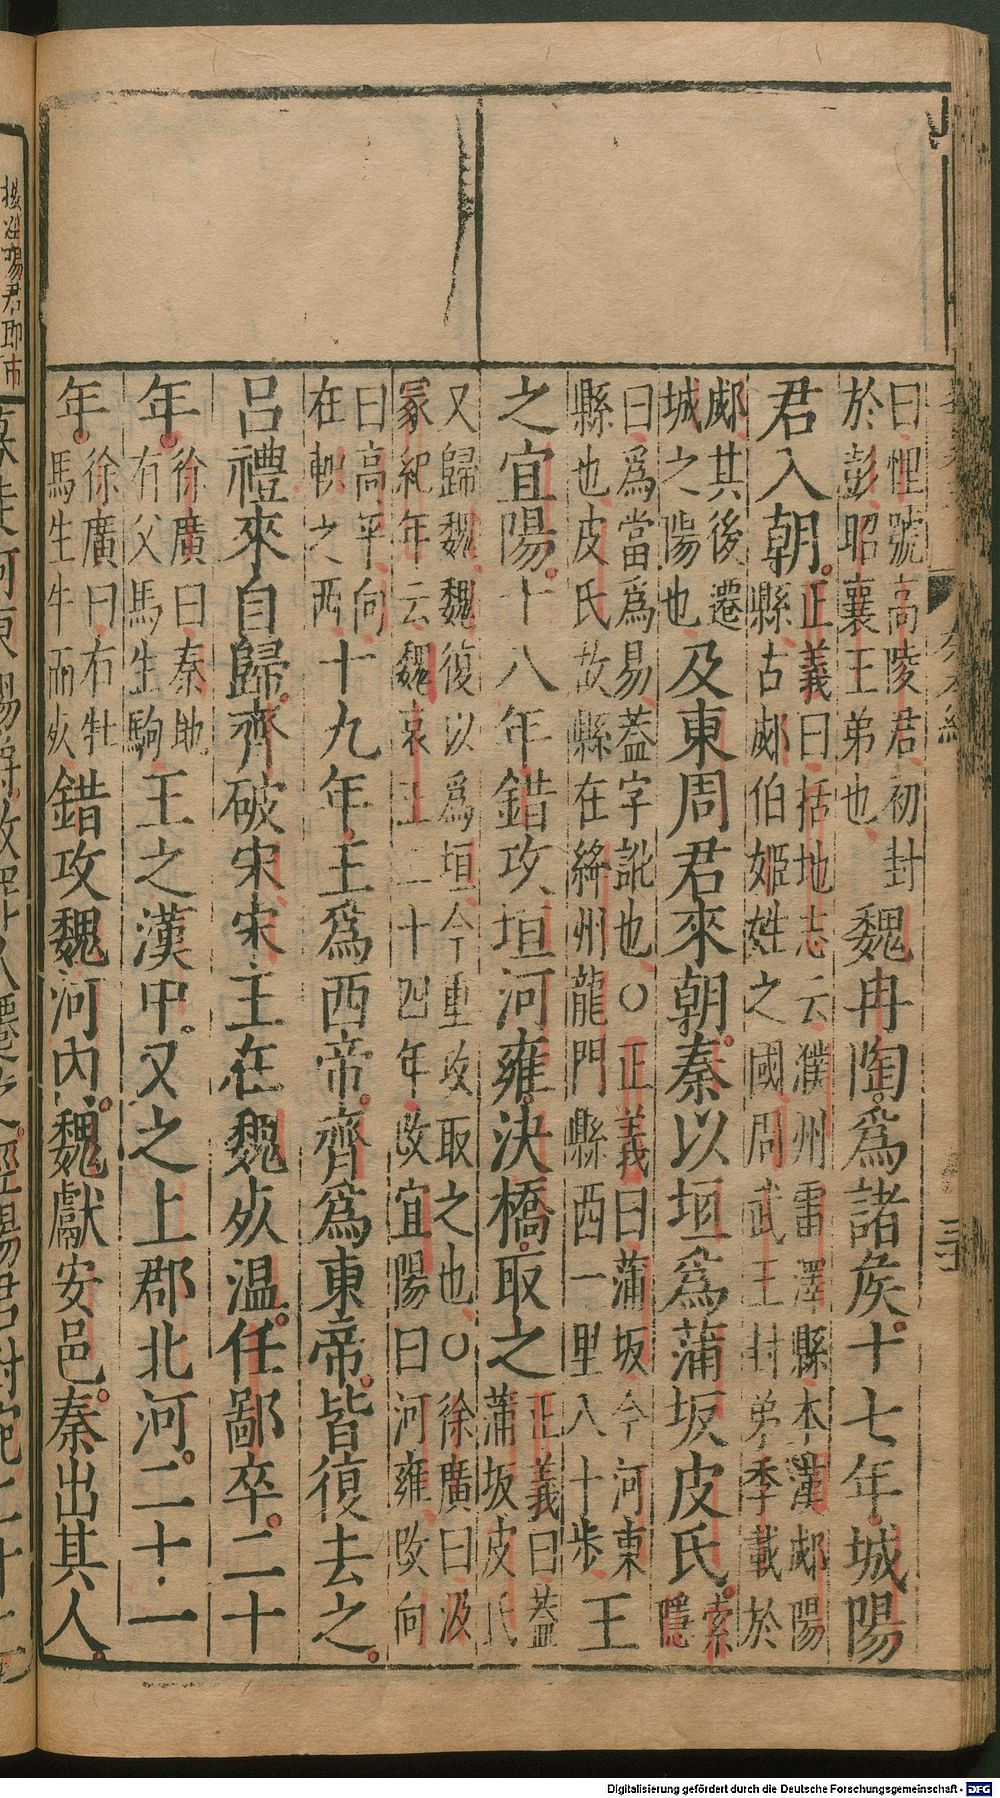 曰悝號高陵君初封
於彭昭襄王弟也 魏冉陶爲諸矦十七年城陽
君入朝 正義曰括地志云濮州雷澤縣本漢郕陽
縣古郕伯姬姓之國周武王封弟季載於
郕其後遷
城之陽也 及東周君來朝秦以垣爲蒲坂皮氏 索
隱
曰爲當爲易蓋字訛也〇正義曰蒲坂今河東
縣也皮氏故縣在絳州龍門縣西一里八十步 王
之宜陽十八年錯攻垣河雍決橋取之 正義曰蓋
蒲坂皮氏
又歸魏魏復以爲垣今重攻取之也〇徐廣曰汲
冢紀年云魏哀王二十四年改宜陽曰河雍改向
曰高平向
在軹之西 十九年王爲西帝齊爲東帝皆復去之
呂禮來自歸齊破宋宋王在魏死温任鄙卒二十
年 徐廣曰秦助
有父馬生駒 王之漢中又之上郡北河二十一
年 徐廣曰有牡
馬生牛而死 錯攻魏河内魏獻安邑秦出其人
Digitalisierung gefördert durch die Deutsche Forschungsgemeinschaft - DFG